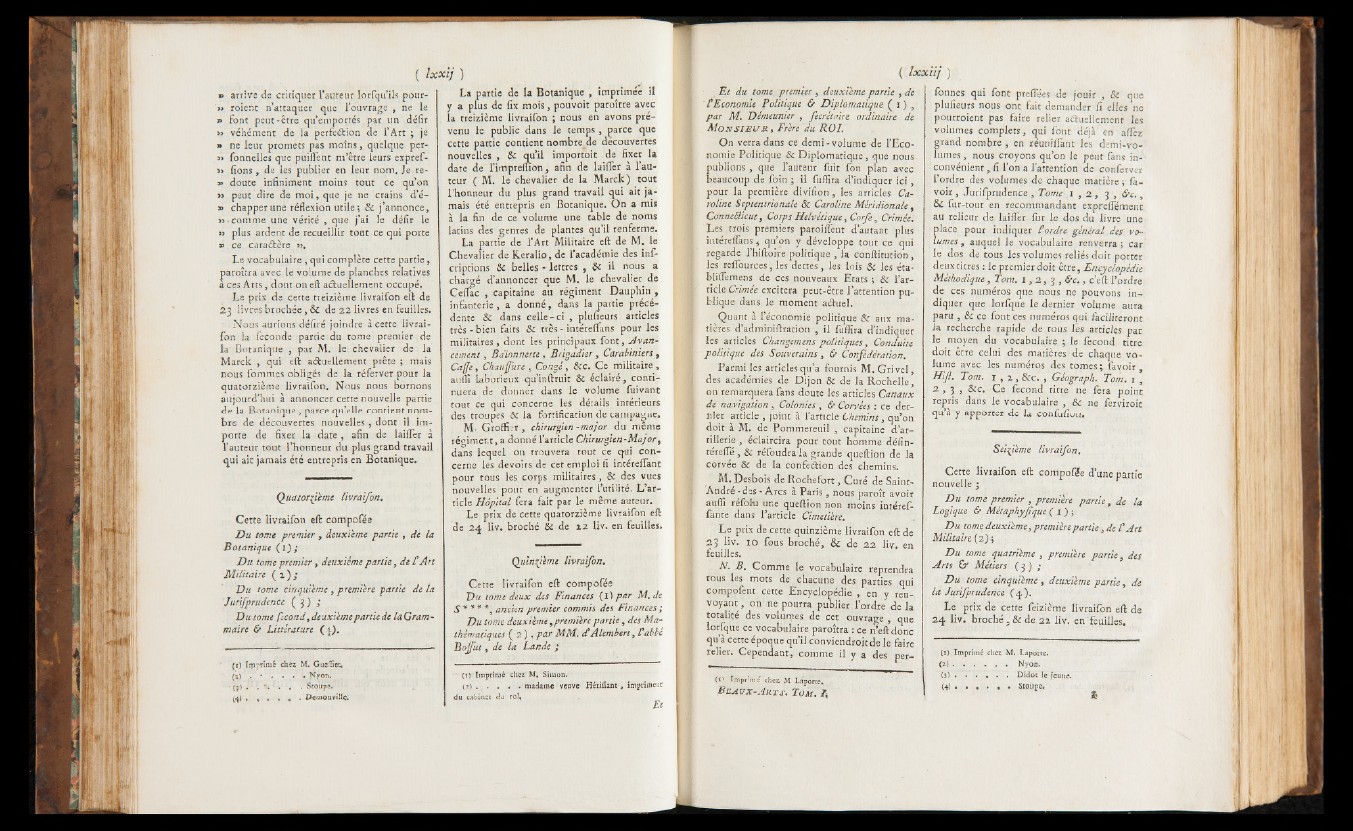 ( lxxij )
» arrive de critiquer l'auteur lorſqu'ils pour-
» roient n'attaquer que l'ouvrage , ne le
» font peut-être qu'emportés par un déſir
» véhément de la perfection de l'Art ; je
» ne leur promets pas moins, quelque per-
» ſonnelles que puiſſent m'être leurs expreſ-
» ſions , de les publier en leur nom. Je re-
» doute infiniment moins tout ce qu'on
» peut dire de moi, que je ne crains d'é-
» chapper une réflexion utile ; & j'annonce,
» comme une vérité , que j'ai le déſir le
» plus ardent de recueillir tout ce qui porte
» ce caractère ».
Le vocabulaire , qui complète cette partie,
paroîtra avec le volume de planches relatives
à ces Arts , dont on eſt actuellement occupé.
Le prix de cette treizième livraiſon eſt de
23 livres brochée , & de 22 livres en feuilles.
Nous aurions déſiré joindre à cette livrai-
ſon la ſeconde partie du tome premier de
la Botanique , par M. le chevalier de la
Marck , qui eſt actuellement prête ; mais
nous ſommes obligés de la réſerver pour la
quatorzième livraiſon. Nous nous bornons
aujourd'hui à annoncer cette nouvelle partie
de la Botanique , parce qu'elle contient nom-
bre de découvertes nouvelles , dont il im-
porte de fixer la date , afin de laiſſer à
l'auteur tout l'honneur du plus grand travail
qui ait jamais été entrepris en Botanique.
Quatorzième livraiſon.
Cette livraiſon eſt compoſée
Du tome premier , deuxième partie , de la
Botanique (1) ;
Du tome premier , deuxième partie, de l'Art
Militaire (2) ;
Du tome cinquième , première partie de la
Juriſprudence (3) ;
Du tome ſecond, deuxième partie de la Gram-
maire & Littérature (4).
(1) Imprimé chez M. Gueffier.
(2) . . . . . . Nyon.
(3) . . . . . . Stoupe.
(4) . . . . . . Demonville.
La partie de la Botanique , imprimée il
y a plus de ſix mois, pouvoit paroître avec
la treizième livraiſon ; nous en avons pré-
venu le public dans le temps , parce que
cette partie contient nombre de découvertes
nouvelles , & qu'il importoit de fixer la
date de l'impreſſion, afin de laiſſer à l'au-
teur ( M. le chevalier de la Marck ) tout
l'honneur du plus grand travail qui ait ja-
mais été entrepris en Botanique. On a mis
à la fin de ce volume une table de noms
latins des genres de plantes qu'il renferme.
La partie de l'Art Militaire eſt de M. le
Chevalier de Keralio, de l'académie des inſ-
criptions & belles - lettres , & il nous a
chargé d'annoncer que M. le chevalier de
Ceſſac , capitaine au régiment Dauphin ,
infanterie , a donné, dans la partie précé-
dente & dans celle-ci , pluſieurs articles
très - bien faits & très - intéreſſans pour les
militaires , dont les principaux ſont , Avan-
cement , Baïonnette , Brigadier , Carabiniers ,
Caſſe , Chauſſure , Congé , &c. Ce militaire ,
auſſi laborieux qu'inſtruit & éclairé , conti-
nuera de donner dans le volume ſuivant
tout ce qui concerne les détails intérieurs
des troupes & la fortification de campagne.
M. Groffier , chirurgien-major du même
régiment, a donné l'article Chirurgien-Major,
dans lequel on trouvera tout ce qui con-
cerne les devoirs de cet emploi ſi intéreſſant
pour tous les corps militaires , & des vues
nouvelles pour en augmenter l'utilité. L'ar-
ticle Hôpital ſera fait par le même auteur.
Le prix de cette quatorzième livraiſon eſt
de 24 liv. broché & de 22 liv. en feuilles.
Quinzième livraiſon.
Cette livraiſon eſt compoſée
Du tome deux des Finances (1) par M. de
S****, ancien premier commis des Finances ;
Du tome deuxième, première partie , des Ma-
thématiques (2), par MM. d'Alembert, l'abbé
Boſſut , de la Lande ;
(1) Imprimé chez M. Simon.
(2) . . . . . madame veuve Hériſſant , imprimeur
du cabinet du roi,
Et
( lxxiij )
Et du tome premier , deuxième partie , de
l'Economie Politique & Diplomatique (1) ,
par M. Démeunier , ſecrétaire ordinaire de
MONSIEUR , Frère du ROI.
On verra dans ce demi-volume de l'Eco-
nomie Politique & Diplomatique, que nous
publions , que l'auteur ſuit ſon plan avec
beaucoup de ſoin ; il ſuffira d'indiquer ici ,
pour la première diviſion , les articles Ca-
roline Septentrionale & Caroline Méridionale ,
Connecticut , Corps Helvétique, Corſe, Crimée.
Les trois premiers paroiſſent d'autant plus
intéreſſans , qu'on y développe tout ce qui
regarde l'hiſtoire politique , la conſtitution,
les reſſources, les dettes, les loix & les éta-
bliſſemens de ces nouveaux Etats ; & l'ar-
ticle Crimée excitera peut-être l'attention pu-
blique dans le moment actuel.
Quant à l'économie politique & aux ma-
tières d'adminiſtration , il ſuffira d'indiquer
les articles Changemens politiques , Conduite
politique des Souverains , & Confédération.
Parmi les articles qu'a fournis M. Grivel ,
des académies de Dijon & de la Rochelle,
on remarquera ſans doute les articles Canaux
de navigation , Colonies , & Corvées : ce der-
nier article , joint à l'article Chemins , qu'on
doit à M. de Pommereuil , capitaine d'ar-
tillerie , éclaircira pour tout homme déſin-
téreſſé , & réſoudra la grande queſtion de la
corvée & de la confection des chemins.
M. Desbois de Rochefort , Curé de Saint-
André-des-Arcs à Paris , nous paroît avoir
auſſi réſolu une queſtion non moins intéreſ-
ſante dans l'article Cimetière.
Le prix de cette quinzième livraiſon eſt de
23 liv. 10 ſous broché, & de 22 liv. en
feuilles.
N. B. Comme le vocabulaire reprendra
tous les mots de chacune des parties qui
compoſent cette Encyclopédie , en y ren-
voyant , on ne pourra publier l'ordre de la
totalité des volumes de cet ouvrage , que
lorſque ce vocabulaire paroîtra : ce n'eſt donc
qu'à cette époque qu'il conviendroit de le faire
relier. Cependant, comme il y a des per-
(1) Imprimé chez M Laporte.
BEAUX-ARTS. TOM. I,
ſonnes qui ſont preſſées de jouir , & que
pluſieurs nous ont fait demander ſi elles ne
pourroient pas faire relier actuellement les
volumes complets, qui ſont déjà en aſſez
grand nombre , en réuniſſant les demi-vo-
lumes , nous croyons qu'on le peut ſans in-
convénient , ſi l'on a l'attention de conſerver
l'ordre des volumes de chaque matière ; ſa-
voir , Juriſprudence , Tome 1 , 2 , 3 , &c.,
& ſur-tout en recommandant expreſſément
au relieur de laiſſer ſur le dos du livre une
place pour indiquer l'ordre général des vo-
lumes , auquel le vocabulaire renverra ; car
le dos de tous les volumes reliés doit porter
deux titres : le premier doit être, Encyclopédie
Méthodique , Tom. 1 , 2 , 3 , &c., c'eſt l'ordre
de ces numéros que nous ne pouvons in-
diquer que lorſque le dernier volume aura
paru , & ce ſont ces numéros qui faciliteront
la recherche rapide de tous les articles par
le moyen du vocabulaire ; le ſecond titre
doit être celui des matières de chaque vo-
lume avec les numéros des tomes ; ſavoir ,
Hiſt. Tom. 1 , 2 , &c. , Géograph. Tom. 1 ,
2 , 3 , &c. Ce ſecond titre ne ſera point
repris dans le vocabulaire , & ne ſerviroit
qu'à y apporter de la confuſion.
Seizième livraiſon.
Cette livraiſon eſt compoſée d'une partie
nouvelle ;
Du tome premier , première partie , de la
Logique & Métaphyſique (1) ;
Du tome deuxième, première partie, de l'Art
Militaire (2) ;
Du tome quatrième , première partie, des
Arts & Métiers (3) ;
Du tome cinquième , deuxième partie, de
la Juriſprudence (4).
Le prix de cette ſeizième livraiſon eſt de
24 liv. broché, & de 22 liv. en feuilles.
(1) Imprimé chez M. Laporte.
(2) . . . . . . Nyon.
(3) . . . . . . Didot le jeune.
(4) . . . . . . Stoupe.